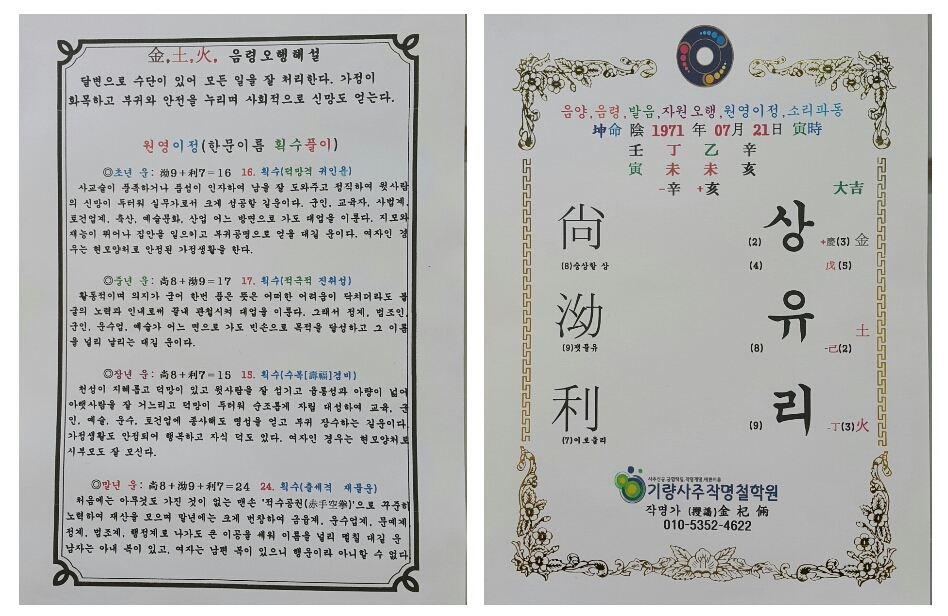 金,土,火, 음령오행해설
달변으로 수단이 있어 모든 일을 잘 처리한다. 가정이
화목하고 부귀와 안전을 누리며 사회적으로 신망도 얻는다.
원영이정(한문이름 획수풀이)
◎초년 운: 泑9+利7=16 16. 획수(덕망격 귀인운)
사교술이 풍족하거나 품성이 인자하여 남을 잘 도와주고 정직하여 윗사람
의 신망이 두터워 실무가로서 크게 성공할 길운이다. 군인, 교육자, 사법계,
토건업계, 축산, 예술문화, 산업 어느 방면으로 가도 대업을 이룬다. 지모와
재능이 뛰어나 집안을 일으키고 부귀공명으로 얻을 대길 운이다. 여자인 경
우는 현모양처로 안정된 가정생활을 한다.
◎중년 운: 尙8+泑9=17 17. 획수(적극적 진취섭)
활동적이며 의지가 굳어 한번 품은 뜻은 어떠한 어려움이 닥치더라도 불
굴의 노력과 인내로써 끝내 관철시켜 대업을 이룬다. 그래서 정계, 법조인,
군인, 운수업, 예술가 어느 면으로 가도 빈손으로 목적을 달성하고 그 이름
을 널리 날리는 대길 운이다.
◎장년 운: 尙8+利7=15 15. 획수(수복[壽福]겸비)
천성이 지혜롭고 덕망이 있고 윗사람을 잘 섬기고 융통성과 아량이 넓어
아랫사람을 잘 거느리고 덕망이 두터워 순조롭게 자립 대성하여 교육, 군
인, 예술, 운수, 토건업에 종사해도 명성을 얻고 부귀 장수하는 길운이다.
가정생활도 안정되어 행복하고 자식 덕도 있다. 여자인 경우는 현모양처로
시부모도 잘 모신다.
◎말년 운: 尙8+泑9+利7=24 24. 획수(출세격 재물운)
처음에는 아무것도 가진 것이 없는 맨손 '적수공권(赤手空拳)'으로 꾸준히
노력하여 재산을 모으며 말년에는 크게 번창하여 금융계, 운수업계, 문예계
정계, 법조계, 행정계로 나가도 큰 이공을 세워 이름을 널리 떨칠 대길 운
남자는 아내 복이 있고, 여자는 남편 복이 있으니 행운이라 아니할 수 없다.
음양,음령,발음,자원오행,원영이정,소리파동
坤命 陰 1971 年 07月 21日 寅時
壬 丁 乙 辛
寅 未 未 亥
-辛 +亥 大吉
尙 (2) 상 +慶(3) 金
(8)숭상할 상 (4) 戊(5)
泑 유 土
(9)잿물유 (8) -己(2)
利 리
(7)이로울리 (9) -丁(3)火
기량사주작명철학원
작명가 金 杞 倆
010-5352-4622